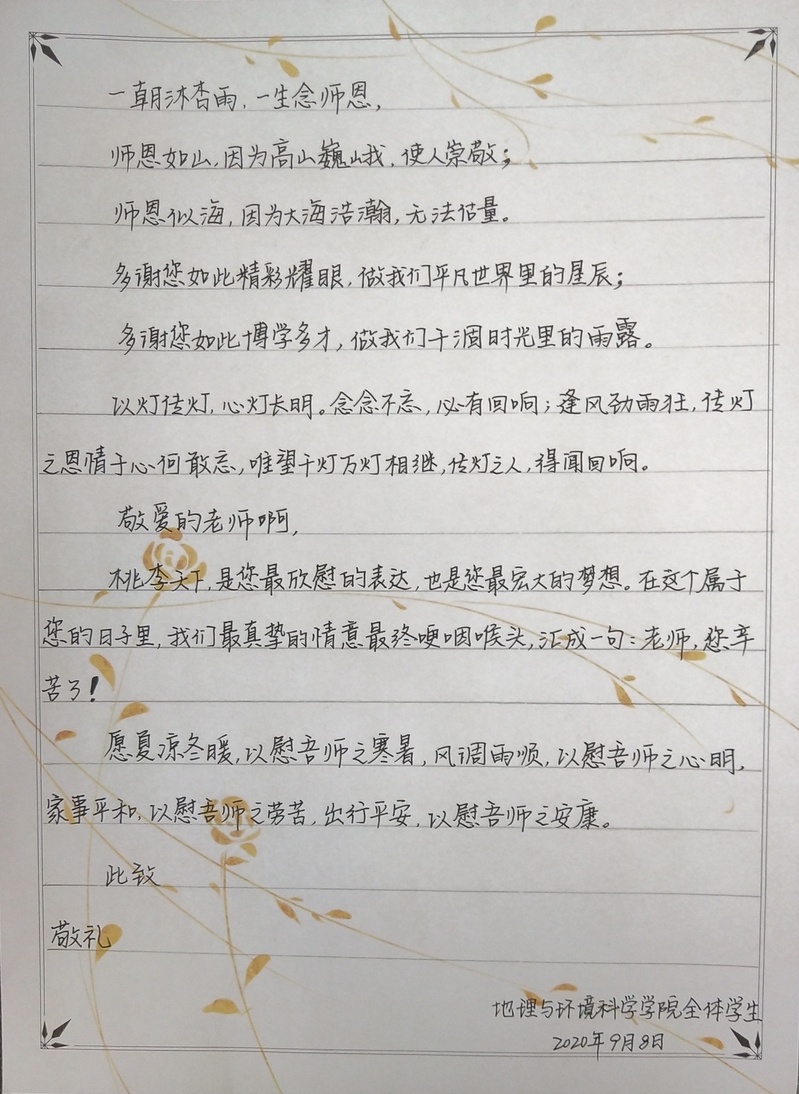 一朝沐杏雨，一生念师恩，
师恩如山，因为高山巍峨，使人崇敬；
师恩似海，因为大海浩瀚，无法估量。
多谢您如此精彩耀眼，做我们平凡世界里的星辰；
多谢您如此博学多才，做我们干涸时光里的雨露。
以灯传灯，心灯长明。念念不忘，必有回响；逢风劲雨狂，传灯
之恩情于心何敢忘，唯望千灯万灯相继，传灯之人，得闻回响。
敬爱的老师啊，
桃李天下，是您最欣慰的表达，也是您最宏大的梦想。在这个属于
您的日子里，我们最真挚的情意最终哽咽喉头，汇成一句：老师，您辛
苦了！
愿夏凉冬暖，以慰吾师之寒暑，风调雨顺，以慰吾师之心明，
家事平和，以慰吾师之劳苦，出行平安，以慰吾师之安康。
此致
敬礼
地理与环境科学学院全体学生
2020年9月8日